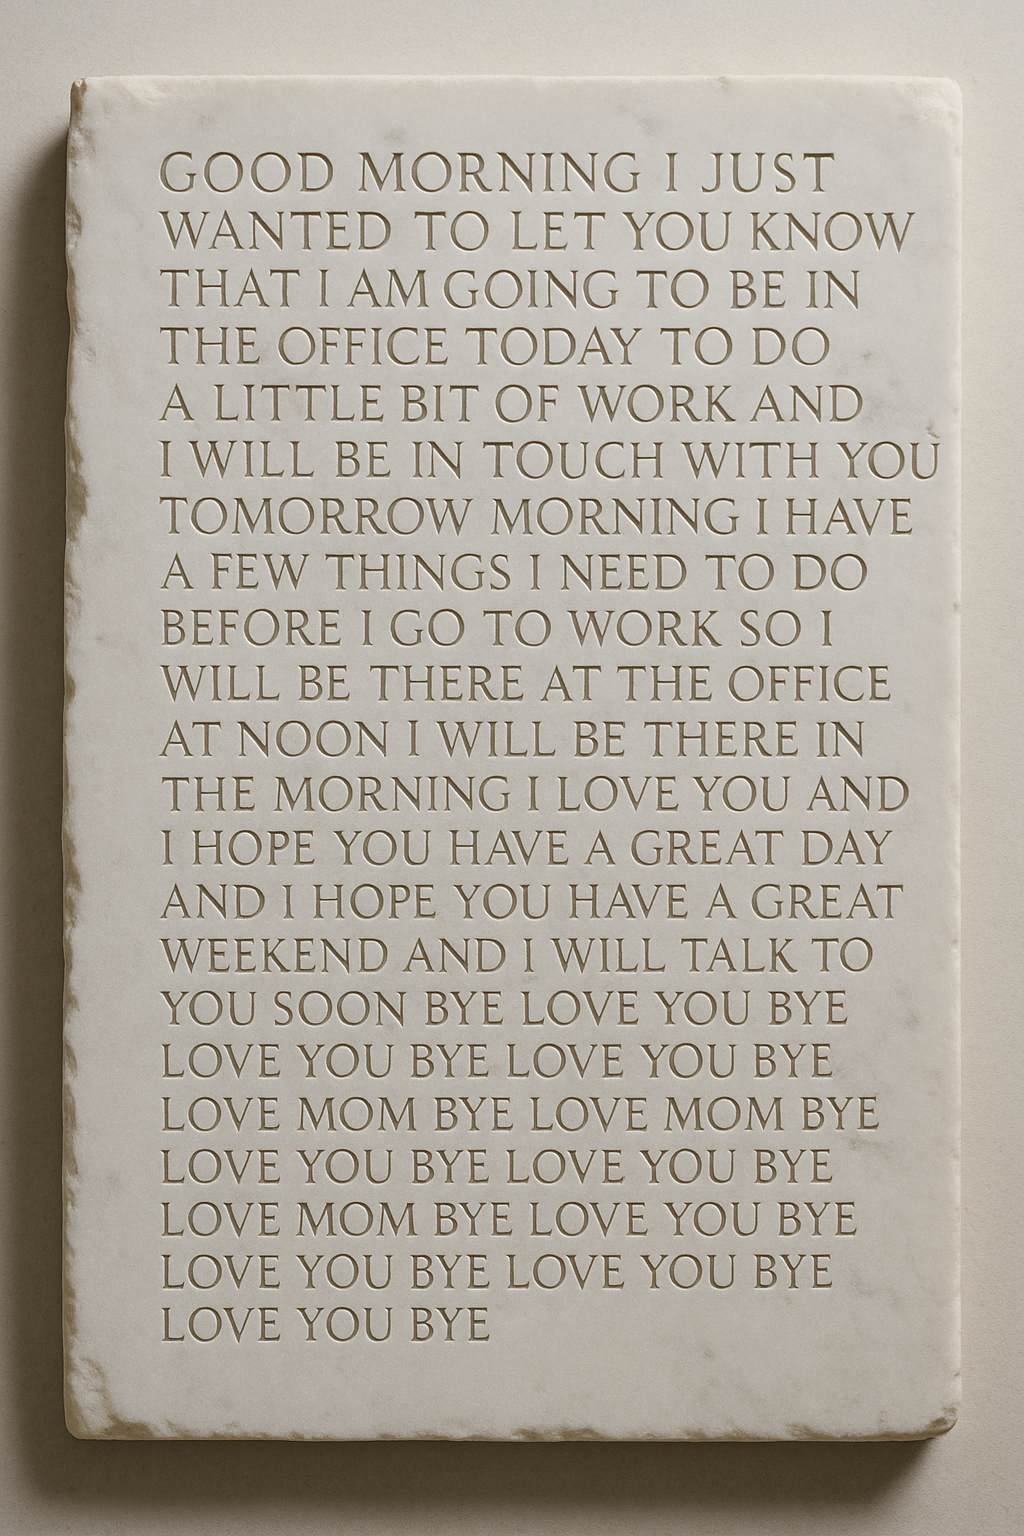 GOOD MORNING I JUST
WANTED TO LET YOU KNOW
THAT I AM GOING TO BE IN
THE OFFICE TODAY TO DO
A LITTLE BIT OF WORK AND
I WILL BE IN TOUCH WITH YOU
TOMORROW MORNING I HAVE
A FEW THINGS I NEED TO DO
BEFORE I GO TO WORK SO I
WILL BE THERE AT THE OFFICE
AT NOON I WILL BE THERE IN
THE MORNING I LOVE YOU AND
I HOPE YOU HAVE A GREAT DAY
AND I HOPE YOU HAVE A GREAT
WEEKEND AND I WILL TALK TO
YOU SOON BYE LOVE YOU BYE
LOVE YOU BYE LOVE YOU BYE
LOVE MOM BYE LOVE MOM BYE
LOVE YOU BYE LOVE YOU BYE
LOVE MOM BYE LOVE YOU BYE
LOVE YOU BYE LOVE YOU BYE
LOVE YOU BYE